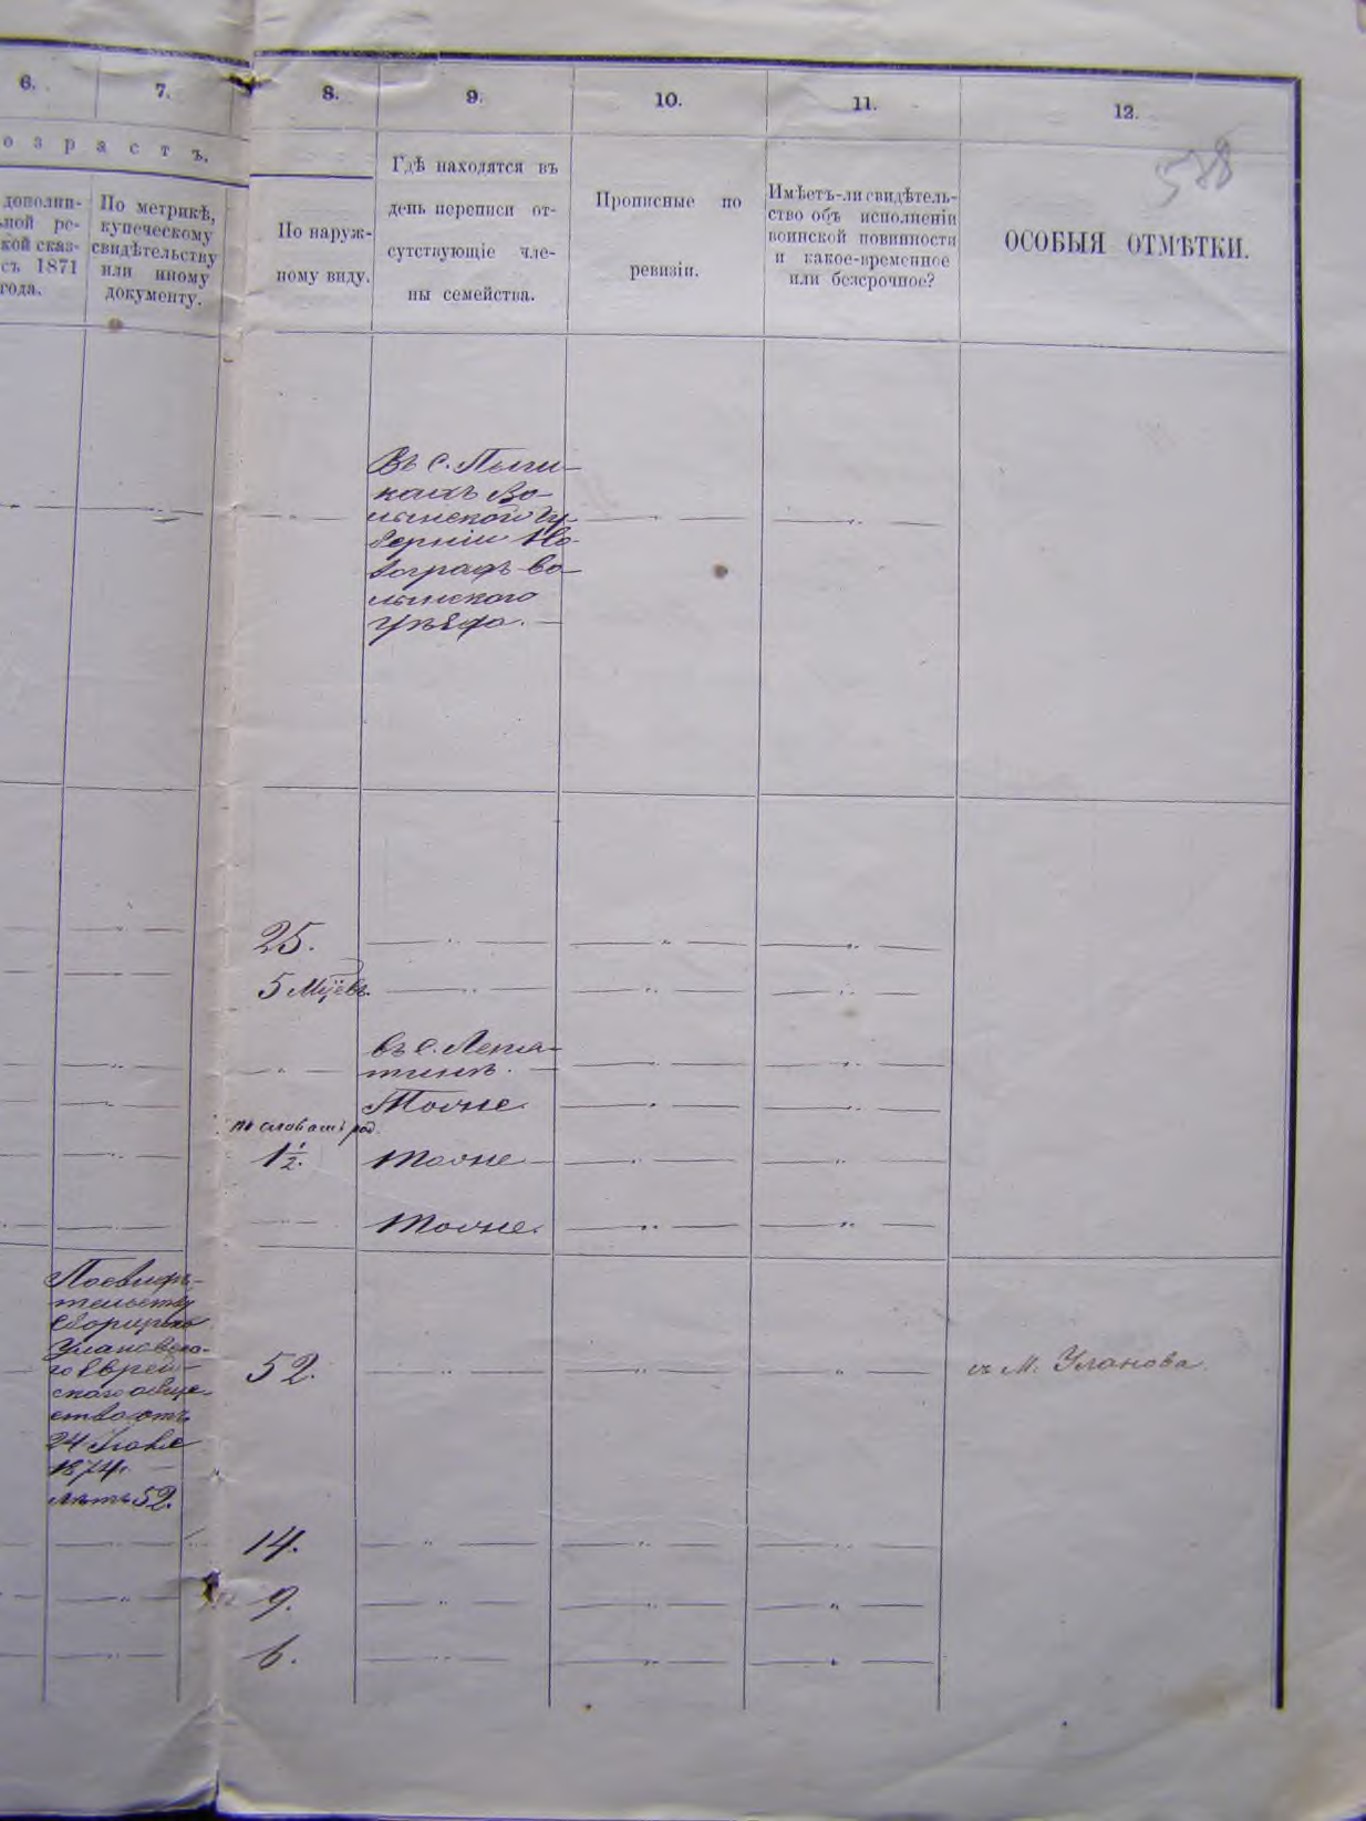 6.
7.
8.
9.
10.
11.
12.
о з р а с т ъ.
588
дополни-
ной ре-
кой сказ-
съ 1871
года.
По метрикѣ,
купеческому
свидѣтельству
или иному
документу.
По наруж-
ному виду.
Гдѣ находятся въ
день переписи от-
сутствующіе чле-
ны семейства.
Прописные по
ревизіи.
Имѣетъ-ли свидѣтель-
ство объ исполненіи
воинской повинности
и какое-временное
или безсрочное?
ОСОБЫЯ ОТМѢТКИ.
Въ с.
Во-
лынской Гу-
берніи Но-
воградъ-во-
лынского
уѣзда.
25.
5 Мцёвъ.
въ с.
Тоже
по словамъ род.
1½.
тоже
тоже.
По свидѣ-
тельству
Сборщика
Улановска-
го Еврей-
скаго обще-
ства отъ
24 Іюля
1874г.
лѣтъ 52.
52.
съ М. Уланова.
14.
9.
6.